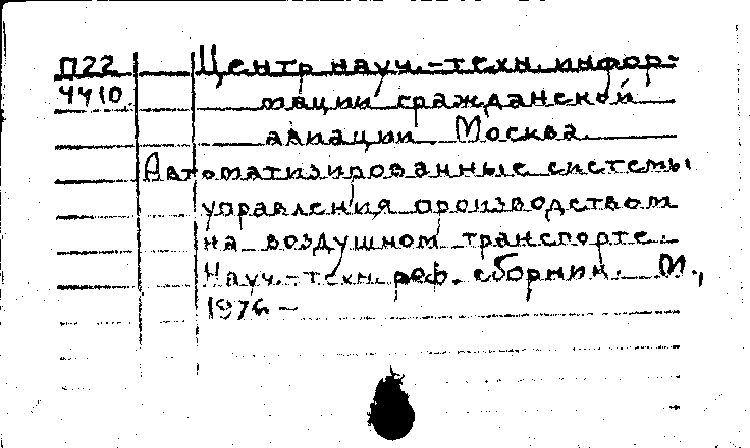 П22 Центр науч.-техн. инфор-
4410 мации гражданской
авиации. Москва.
Автоматизированные системы
управления производством
на воздушном транспорте.
Науч.-техн. реф. сборник. М.,
1974 –